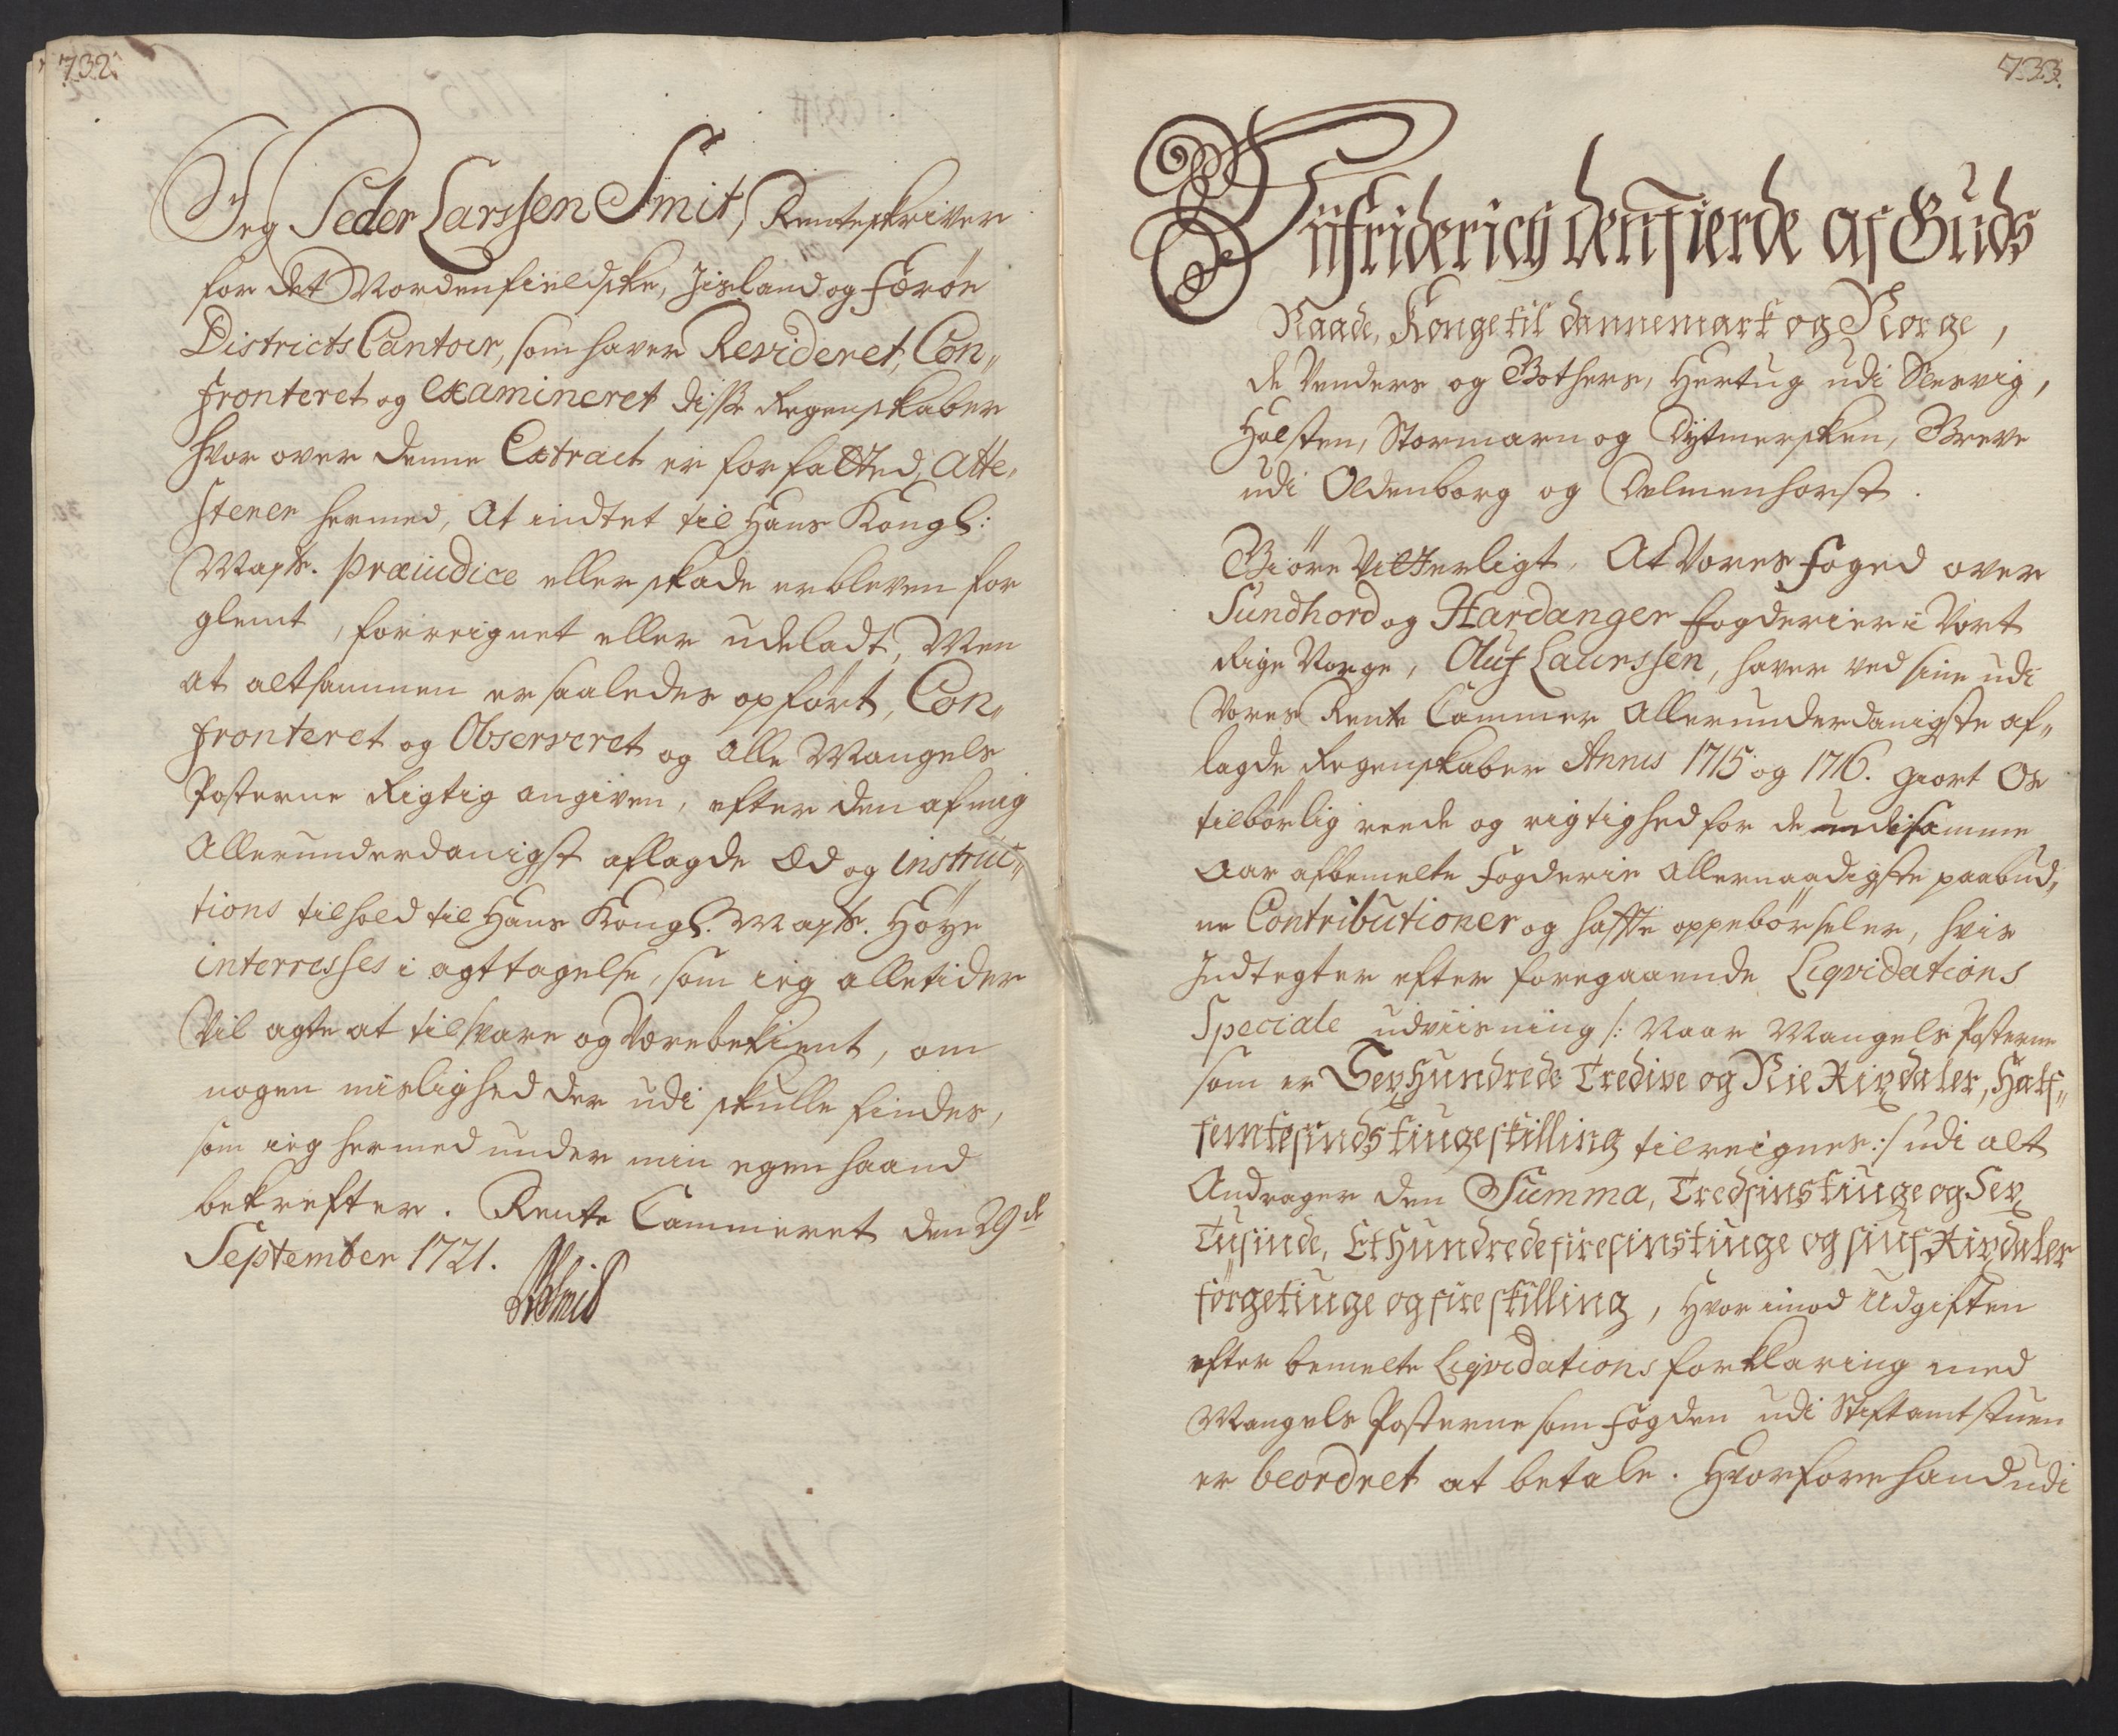 732.
Jeg Peder Larssen Smit, Renteskriver
for det Nordenfieldske, Jisland og Færøe
Districts Cantoir, som haver Revideret, Con„
fronteret og examineret disse Regenskaber
hvor over denne Extract er forfatted, Atte„
sterer hermed, At indtet til Hans Kongl:
Mayts. præiudice eller skade er bleven for
glemt, forreignet eller udeladt, Men
at altsammen er saaledes opført, Con„
fronteret og Observeret og alle Mangels
Posterne Rigtig angiven, efter den af mig
Allerunderdanigst aflagde Ed og instruc„
tions tilhold til Hans Kongl. Mayts. Høye
interresses i agttagelse, som ieg alletider
Vil agte at tilsvare og Være bekient, om
nogen mislighed der udi skulle findes,
som ieg hermed under min egen haand
bekrefter. Rente Cammeret den 29de
September 1721.
PLSmid
733.
Vii Friderich den fierde af Guds
Naade, Konge til Dannemark og Norge,
de Venders og Gothers, Hertug udi Slesvig,
Holsten, Stormarn og Dytmersken, Greve
udi Oldenborg og Delmenhorst.
Giøre Vitterligt, At Vores Foged over
Sundhord og Hardanger Fogderier i Vort
Rige Norge, Oluf Laurssen, haver ved sine udi
Vores Rente Cammer Allerunderdanigste af„
lagde Regenskaber Annis 1715 og 1716. giort Os
tilbørlig reede og rigtighed for de udi samme
Aar afbemelte Fogderie Allernaadigste paabud„
ne Contributioner og haffte oppebørseler, hvis
Indtegter efter foregaaende Liqvidations
Speciale udviisning /: Naar Mangels Posterne
som er Sex Hundrede Tredive og Nie Rixdaler, Half„
femtesinds tiuge skilling tilreignes :/ udi alt
Andrager den Summa, Tredsinstiuge og Sex
Tusinde, Et Hundrede firesinstiuge og siuf Rixdaler
førgetiuge og fire skilling, Hvor imod Udgiften
efter bemelte Liqvidations forklaring med
Mangels Posterne som Fogden udi Stiftamtstuen
er beordret at betale. Hvorfore hand udi